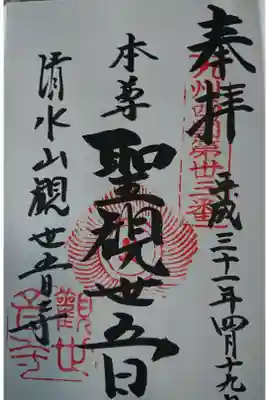 奉拝
九州西国第卅三番
平成三十一年四月十九日
本尊
聖観世音
清水山観世音寺
觀世音寺